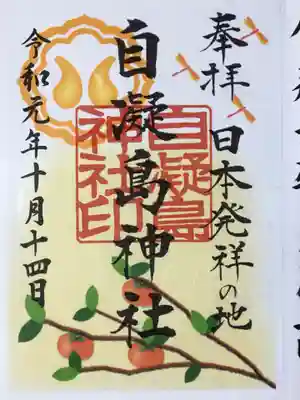 奉拝 日本発祥の地
自凝島神社
自凝島
神社印
令和元年十月十四日